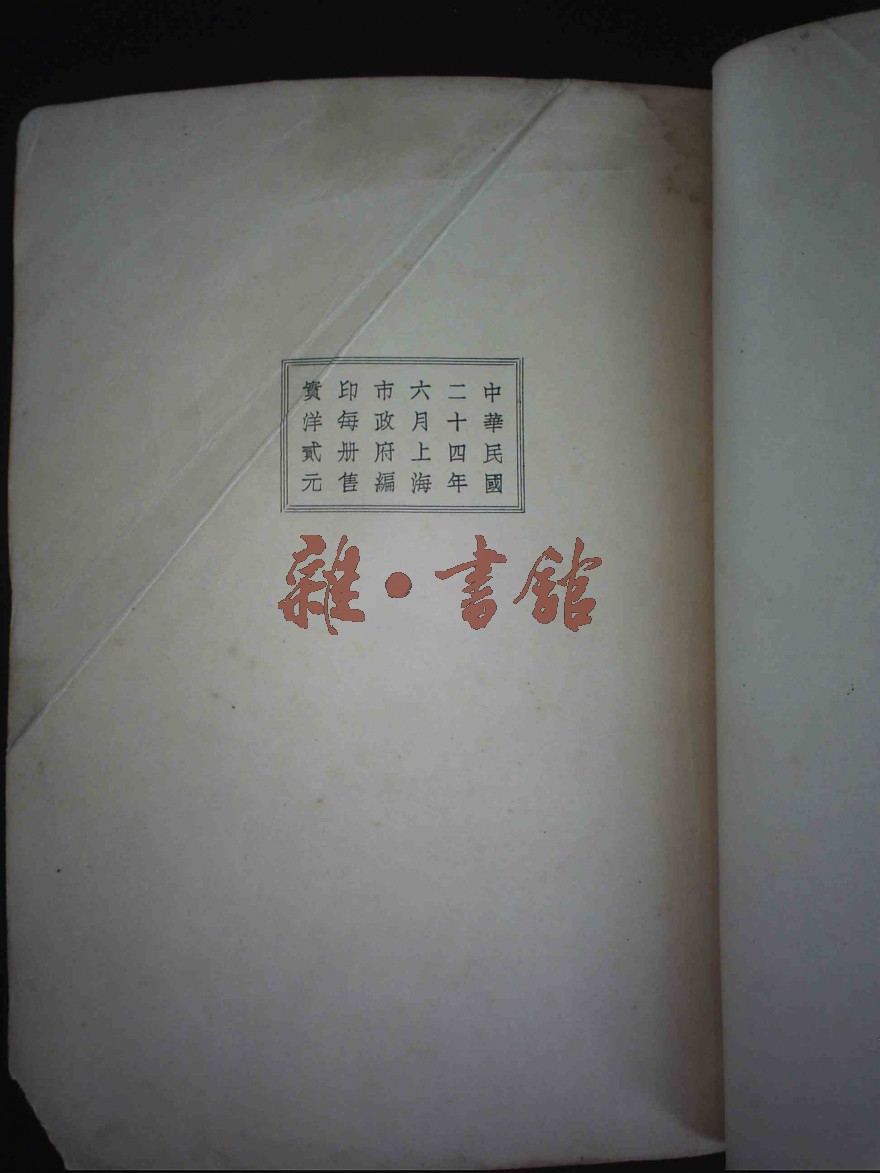 中華民國
二十四年
六月上海
市政府編
印每册售
實洋貳元
雜·書館